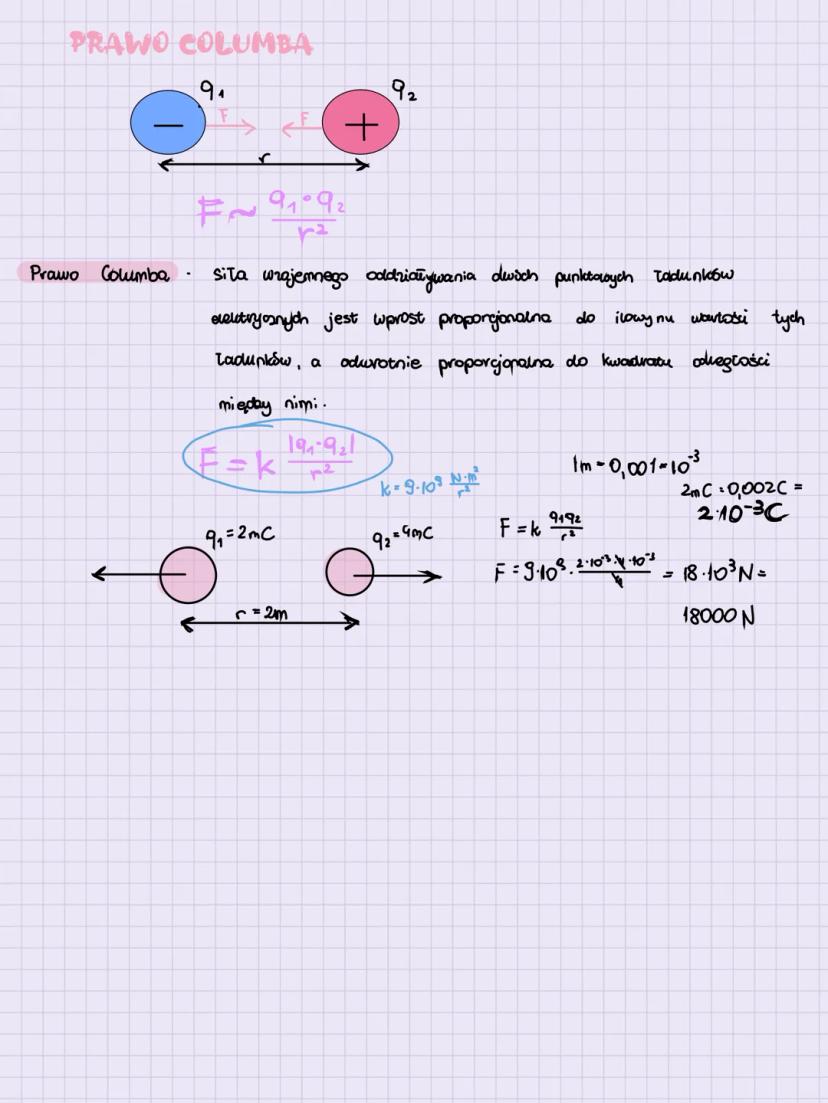 PRAWO COLUMBA
q₁ q₂
F F
- +
r
F ~ q₁·q₂ / r²
Prawo Columba - siła wzajemnego oddziaływania dwóch punktowych ładunków
elektrycznych jest wprost proporcjonalna do iloczynu wartości tych
ładunków, a odwrotnie proporcjonalna do kwadratu odległości
między nimi.
F = k |q₁·q₂| / r²
k = 9·10⁹ N·m² / r²
1m = 0,001 = 10⁻³
2mC = 0,002C =
2·10⁻³C
q₁ = 2mC q₂ = 4mC
r = 2m
F = k q₁q₂ / r²
F = 9·10⁹ · 2·10⁻³·4·10⁻³ / 4 = 18·10³N =
18000 N